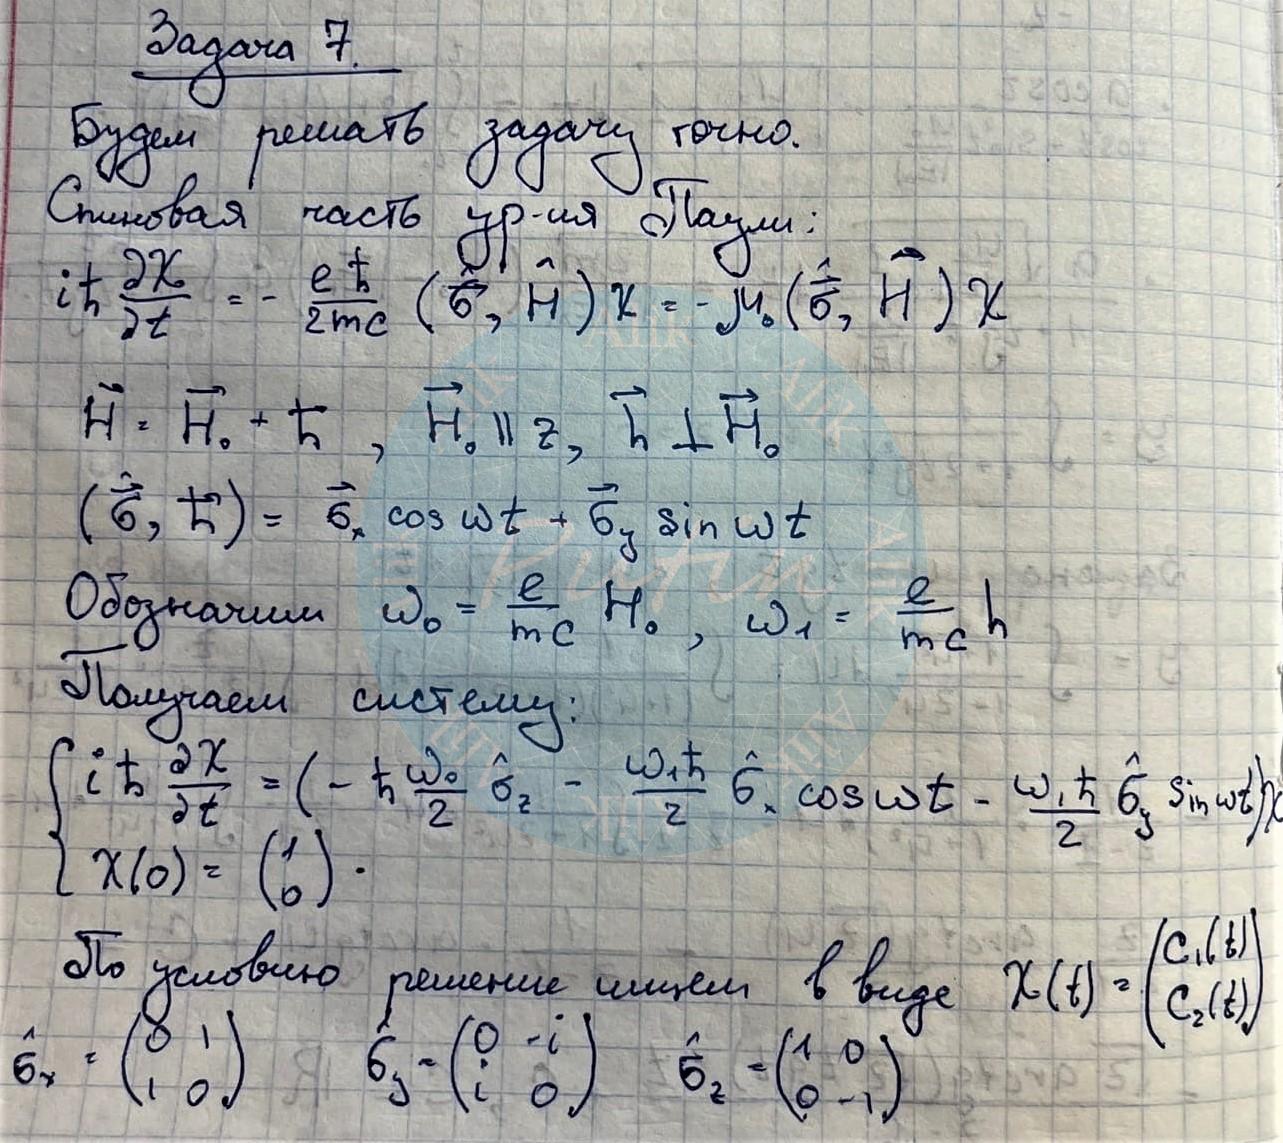 Задача 7.
Будем решать задачу точно.
Спиновая часть ур-ия Паули:
iħ ∂χ/∂t = - eħ/2mc (σ̂⃗, Ĥ) χ = - μ₀ (σ̂⃗, H⃗) χ
H⃗ = H⃗₀ + ħ , H⃗₀ ∥ z, h⃗ ⊥ H⃗₀
(σ̂⃗, ħ⃗) = σ⃗ₓ cos ωt + σ⃗_y sin ωt
Обозначим ω₀ = e/mc H₀ , ω₁ = e/mc h
Получаем систему:
{ iħ ∂χ/∂t = (- ħ ω₀/2 σ̂_z - ω₁ħ/2 σ̂ₓ cos ωt - ω₁ħ/2 σ̂_y sin ωt) χ
χ(0) = (1 0) .
По условию решение ищем в виде χ(t) = (C₁(t) C₂(t))
σ̂ₓ = (0 1 1 0) σ̂_y = (0 -i i 0) σ̂_z = (1 0 0 -1)
Alik
Alik
Alik
Alik
Alik
Alik
Alik
Alik
Putin